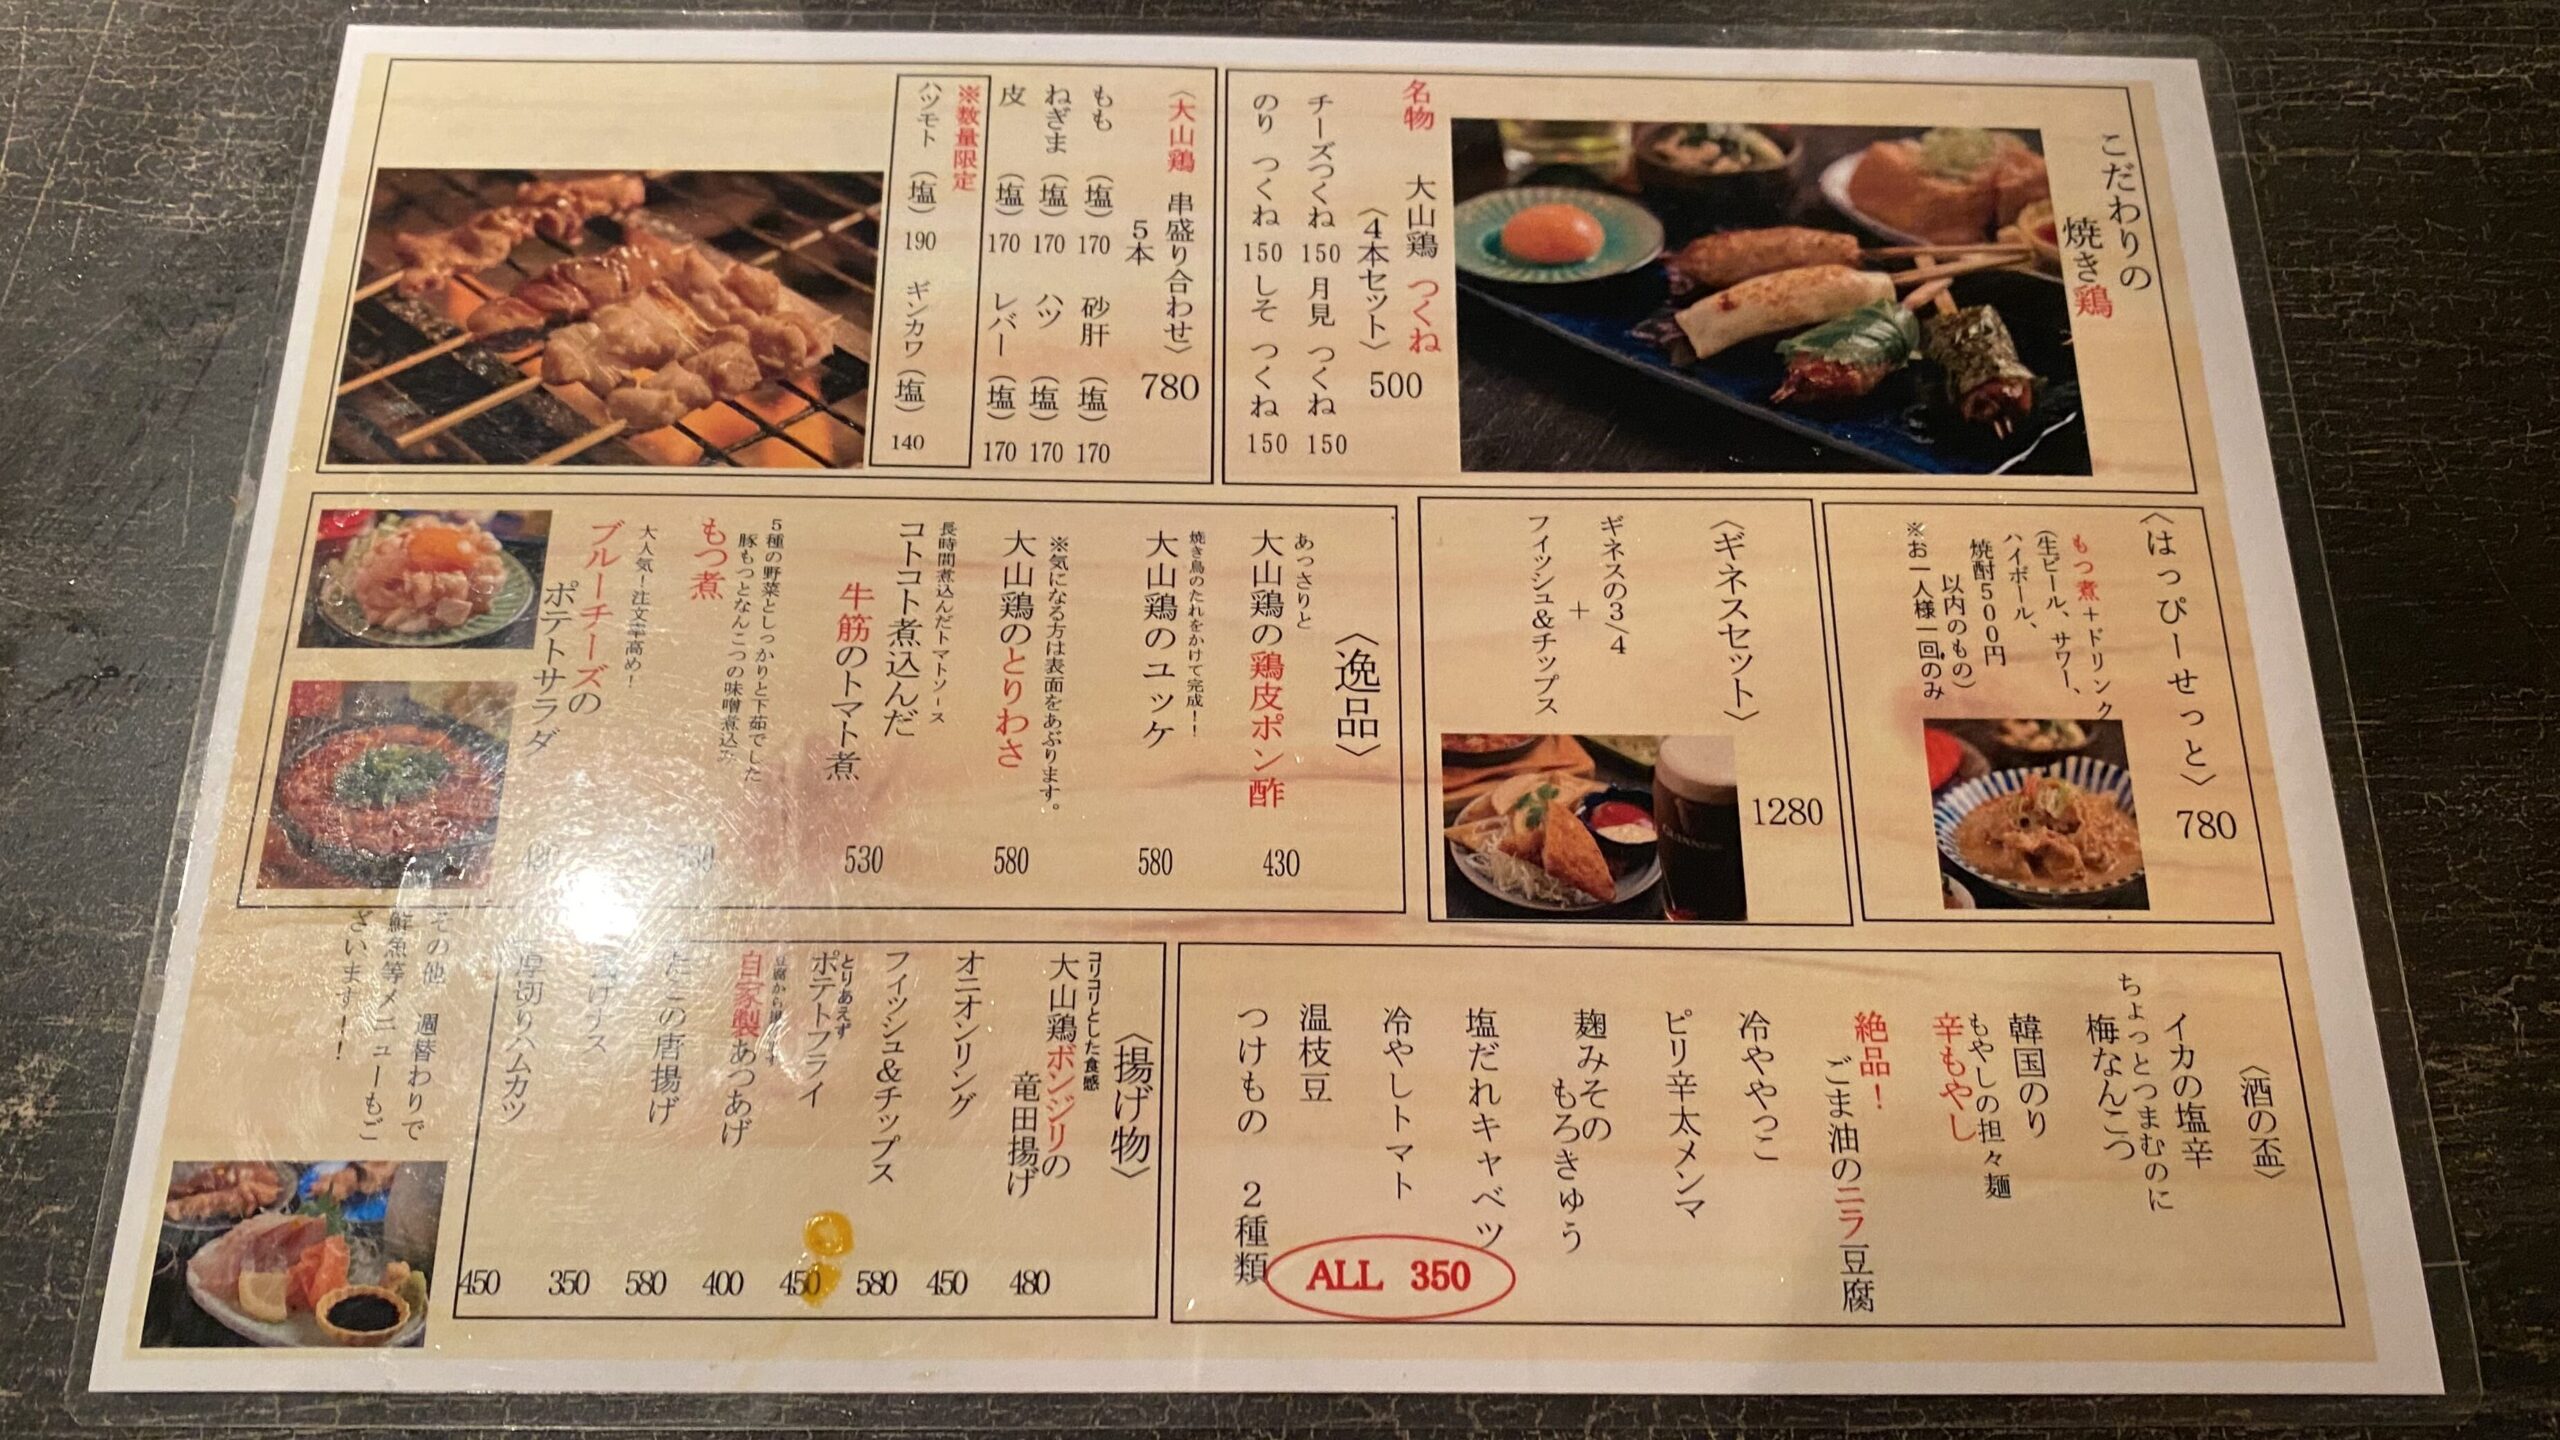 こだわりの
焼き鶏
名物 大山鶏 つくね
〈4本セット〉 500
チーズつくね 150 月見 つくね 150
のり つくね 150 しそ つくね 150
〈大山鶏 串盛り合わせ〉
5本 780
もも (塩) 170 砂肝 (塩) 170
ねぎま (塩) 170 ハツ (塩) 170
皮 (塩) 170 レバー (塩) 170
※数量限定
ハツモト (塩) 190 ギンカワ (塩) 140
〈はっぴーせっと〉 780
もつ煮+ドリンク
(生ビール、サワー、
ハイボール、
焼酎500円
以内のもの)
※お一人様一回のみ
〈ギネスセット〉 1280
ギネスの3/4
+
フィッシュ&チップス
GUINNESS
〈逸品〉
あっさりと
大山鶏の鶏皮ポン酢 430
焼き鳥のたれをかけて完成!!
大山鶏のユッケ 580
※気になる方は表面をあぶります。
大山鶏のとりわさ 580
長時間煮込んだトマトソース
コトコト煮込んだ
牛筋のトマト煮 530
5種の野菜としっかりと下茹でした
豚もつとなんこつの味噌煮込み
もつ煮 530
大人気!注文率高め!
ブルーチーズの
ポテトサラダ
〈酒の盃〉
イカの塩辛
ちょっとつまむのに
梅なんこつ
韓国のり
もやしの担々麺
辛もやし
絶品!
ごま油のニラ豆腐
冷ややっこ
ピリ辛太メンマ
麹みその
もろきゅう
塩だれキャベツ
冷やしトマト
温枝豆
つけもの 2種類
ALL 350
〈揚げ物〉
コリコリとした食感
大山鶏ボンジリの
竜田揚げ 480
オニオンリング 450
フィッシュ&チップス 580
とりあえず
ポテトフライ 450
豆腐から
自家製あつあげ 400
たこの唐揚げ 580
揚げナス 350
厚切りハムカツ 450
その他 週替わりで
鮮魚等メニューもご
ざいます!!